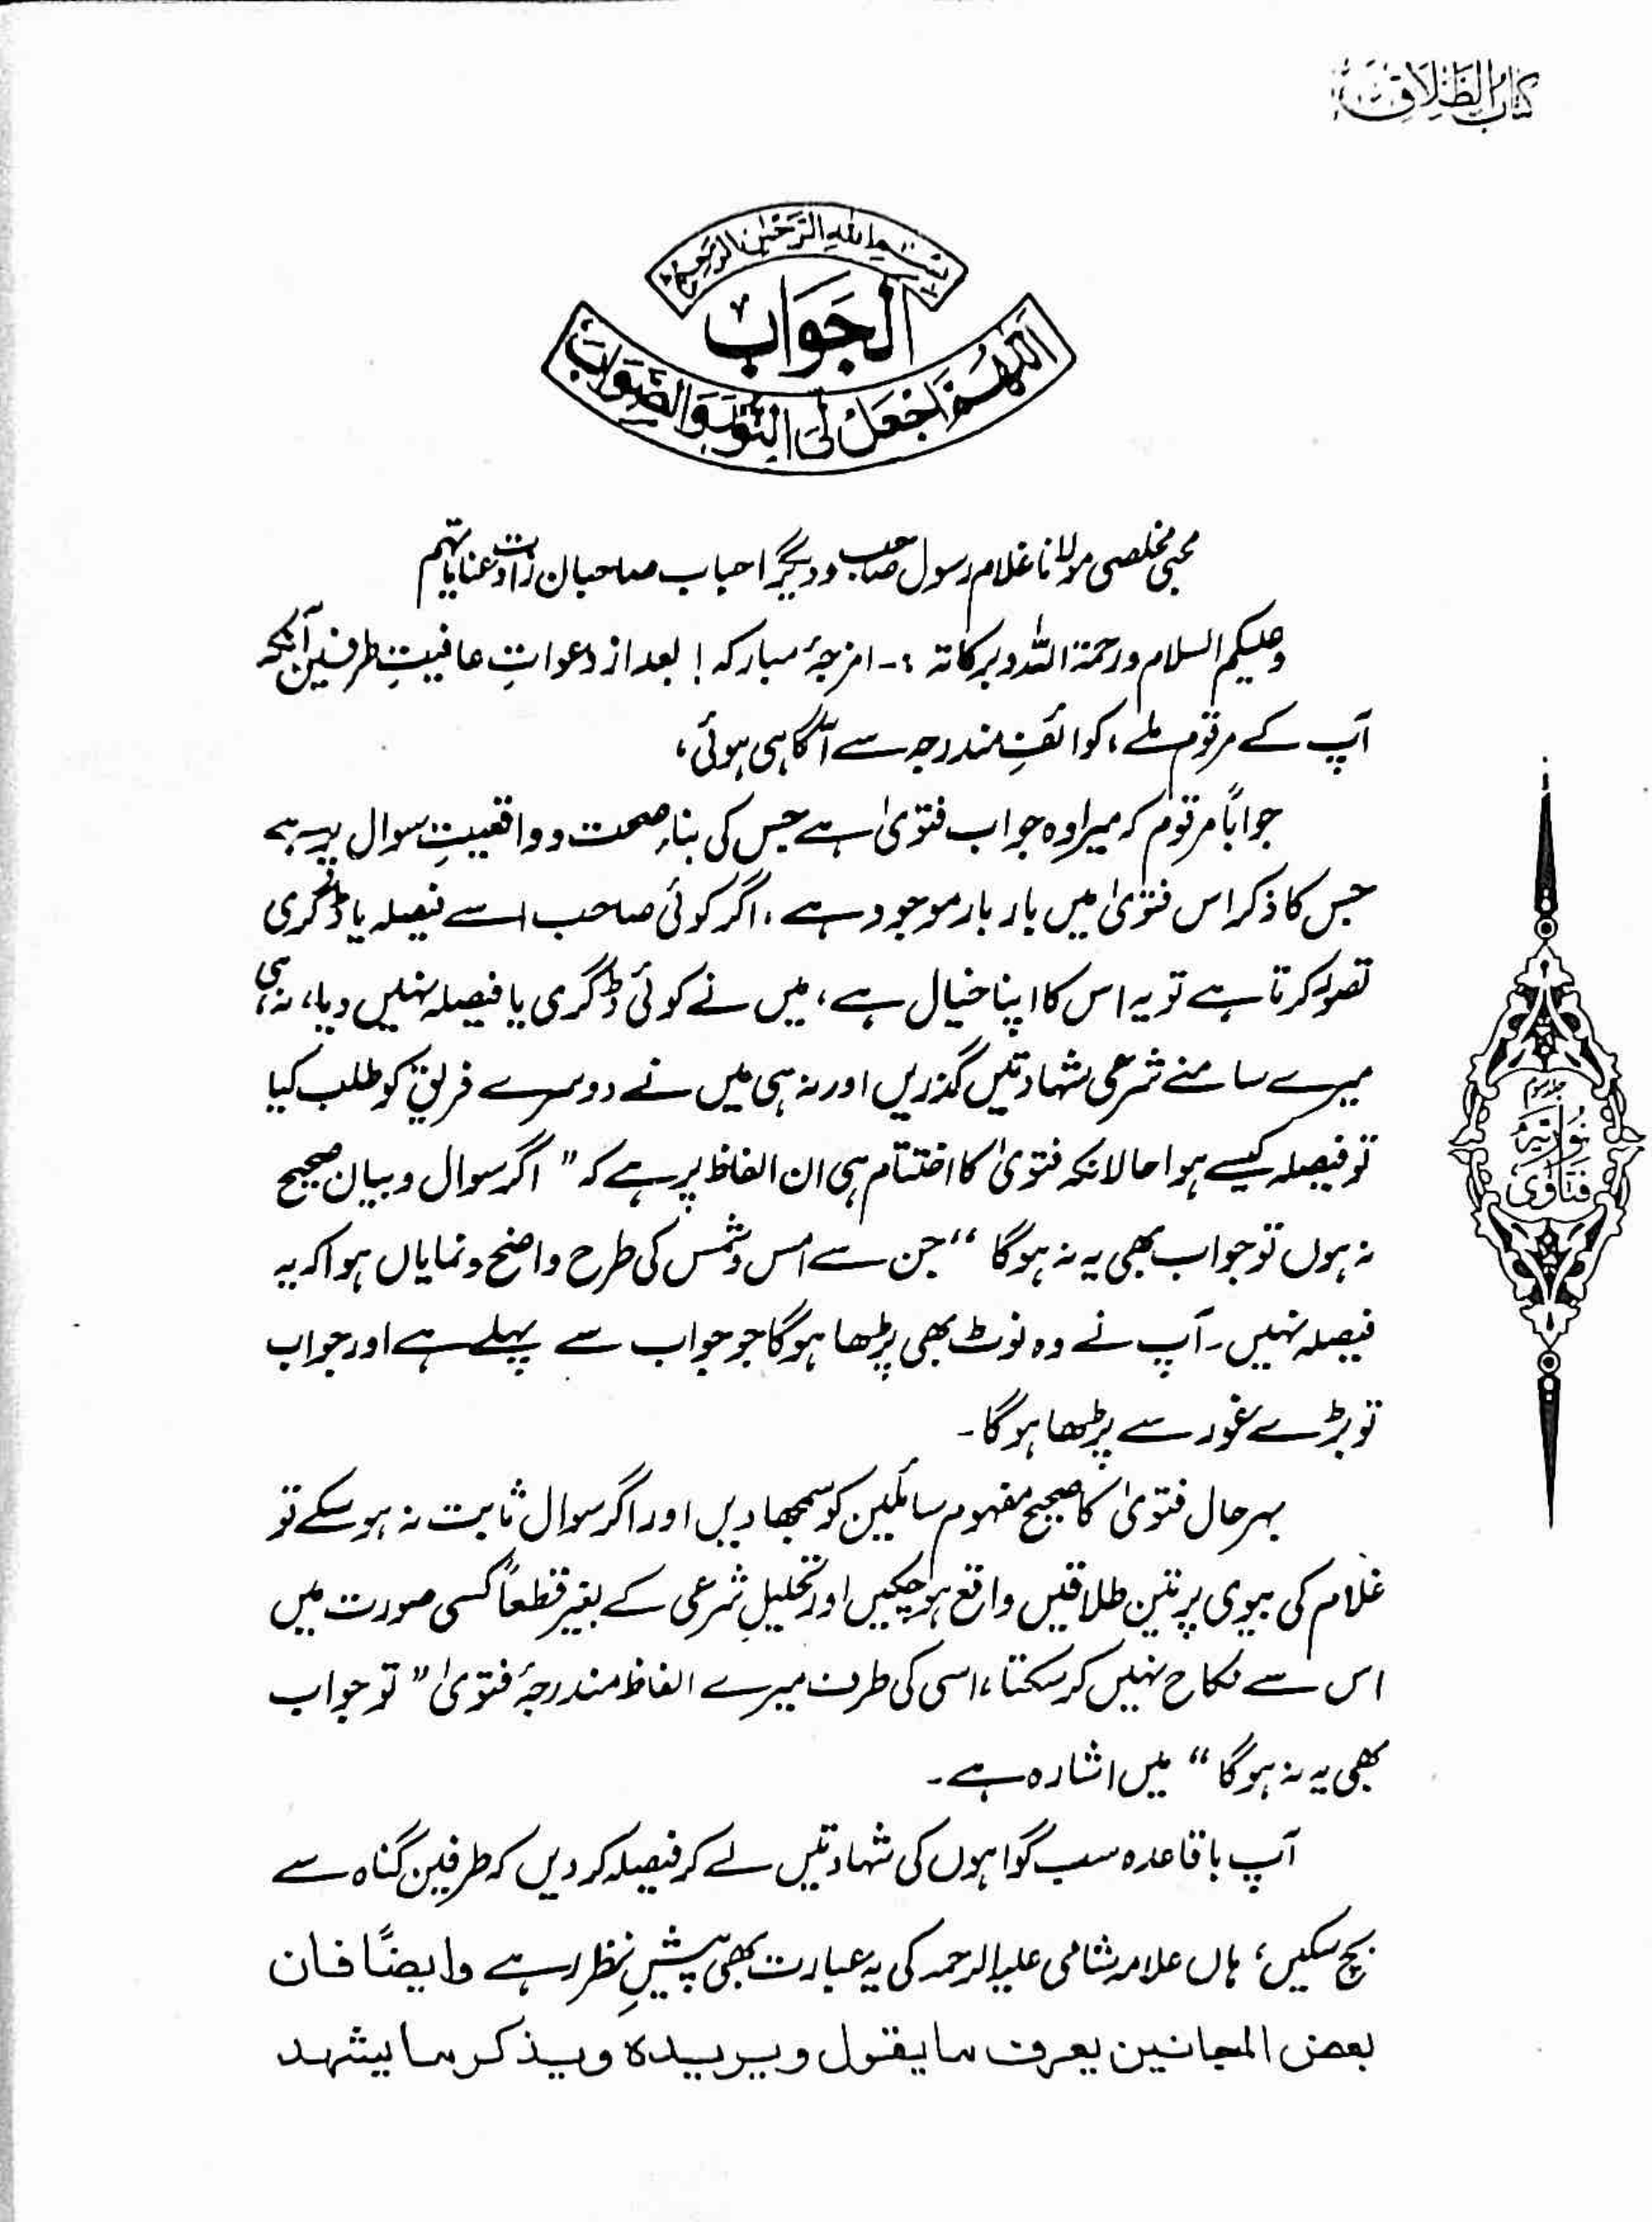 کتاب الطلاق
بسم الله الرحمن الرحیم
الجواب
اللهم اجعل لی النور والصواب
محبی مخلصی مولانا غلام رسول صاحب و دیگر احباب صاحبان زادت عنایاتہم
وعلیکم السلام ورحمۃ اللہ وبرکاتہ :۔ امزجۂ مبارکہ! بعد از دعواتِ عافیتِ طرفین آنکہ
آپ کے مرقوم ملے، کوائفِ مندرجہ سے آگاہی ہوئی،
جواباً مرقوم کہ میرا وہ جواب فتویٰ ہے جس کی بناء صحت و واقعیتِ سوال پر ہے
جس کا ذکر اس فتویٰ میں بار بار موجود ہے، اگر کوئی صاحب اسے فیصلہ یا ڈگری
تصور کرتا ہے تو یہ اس کا اپنا خیال ہے، میں نے کوئی ڈگری یا فیصلہ نہیں دیا، نہ ہی
میرے سامنے شرعی شہادتیں گذریں اور نہ ہی میں نے دوسرے فریق کو طلب کیا
تو فیصلہ کیسے ہوا حالانکہ فتویٰ کا اختتام ہی ان الفاظ پر ہے کہ ” اگر سوال و بیان صحیح
نہ ہوں تو جواب بھی یہ نہ ہوگا “ جن سے امس و شمس کی طرح واضح و نمایاں ہوا کہ یہ
فیصلہ نہیں۔ آپ نے وہ نوٹ بھی پڑھا ہوگا جو جواب سے پہلے ہے اور جواب
تو بڑے غور سے پڑھا ہوگا۔
بہرحال فتویٰ کا صحیح مفہوم سائلین کو سمجھا دیں اور اگر سوال ثابت نہ ہو سکے تو
غلام کی بیوی پر تین طلاقیں واقع ہو چکیں اور تحلیلِ شرعی کے بغیر قطعاً کسی صورت میں
اس سے نکاح نہیں کر سکتا، اسی کی طرف میرے الفاظ مندرجۂ فتویٰ ” تو جواب
بھی یہ نہ ہوگا “ میں اشارہ ہے۔
آپ باقاعدہ سب گواہوں کی شہادتیں لے کر فیصلہ کر دیں کہ طرفین گناہ سے
بچ سکیں، ہاں علامہ شامی علیہ الرحمہ کی یہ عبارت بھی پیشِ نظر رہے وایضًا فان
بعض المجانین یعرف ما یقول ویریدہ ویذکر ما یشهد
جلد سوم
نوریہ
فتاوی